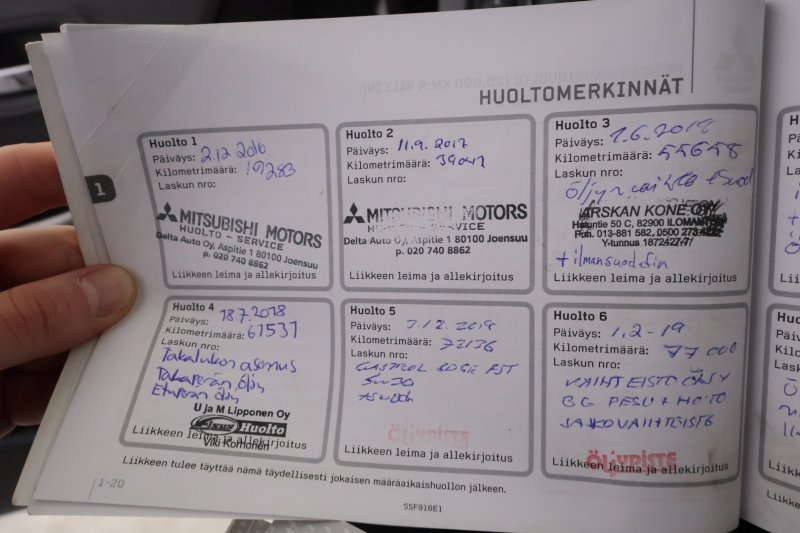 HUOLTOMERKINNÄT
1
Huolto 1
Päiväys: 2.12.2016
Kilometrimäärä: 19283
Laskun nro:
MITSUBISHI MOTORS
HUOLTO - SERVICE
Delta Auto Oy, Aspitie 1 80100 Joensuu
p. 020 740 8862
Liikkeen leima ja allekirjoitus
Huolto 2
Päiväys: 11.9.2017
Kilometrimäärä: 39041
Laskun nro:
MITSUBISHI MOTORS
HUOLTO - SERVICE
Delta Auto Oy, Aspitie 1 80100 Joensuu
p. 020 740 8862
Liikkeen leima ja allekirjoitus
Huolto 3
Päiväys: 1.6.2018
Kilometrimäärä: 55658
Laskun nro:
Öljyn vaihto
ARSKAN KONE OY
50 C, 82900 ILOMANTSI
Puh. 013-881 582, 0500
Y-tunnus 1872427-7
+ ilmansuodatin
Liikkeen leima ja allekirjoitus
Huolto 4
Päiväys: 18.7.2018
Kilometrimäärä: 61531
Laskun nro:
Takalukon asennus
Takaperän öljy
Etuperän öljy
U ja M Lipponen Oy
Huolto
Liikkeen leima ja allekirjoitus
Viki Korhonen
Huolto 5
Päiväys: 3.12.2018
Kilometrimäärä: 72136
Laskun nro:
CASTROL EDGE FST
5W30
ÖLJYPISTE
Liikkeen leima ja allekirjoitus
Huolto 6
Päiväys: 1.2-19
Kilometrimäärä: 77000
Laskun nro:
VAIHTEISTOÖLJY
BG PESU + HOITO
JAKOVAIHTEISTO
ÖLJYPISTE
Liikkeen leima ja allekirjoitus
Liikkeen tulee täyttää nämä täydellisesti jokaisen määräaikaishuollon jälkeen.
1-20
SSF916E1